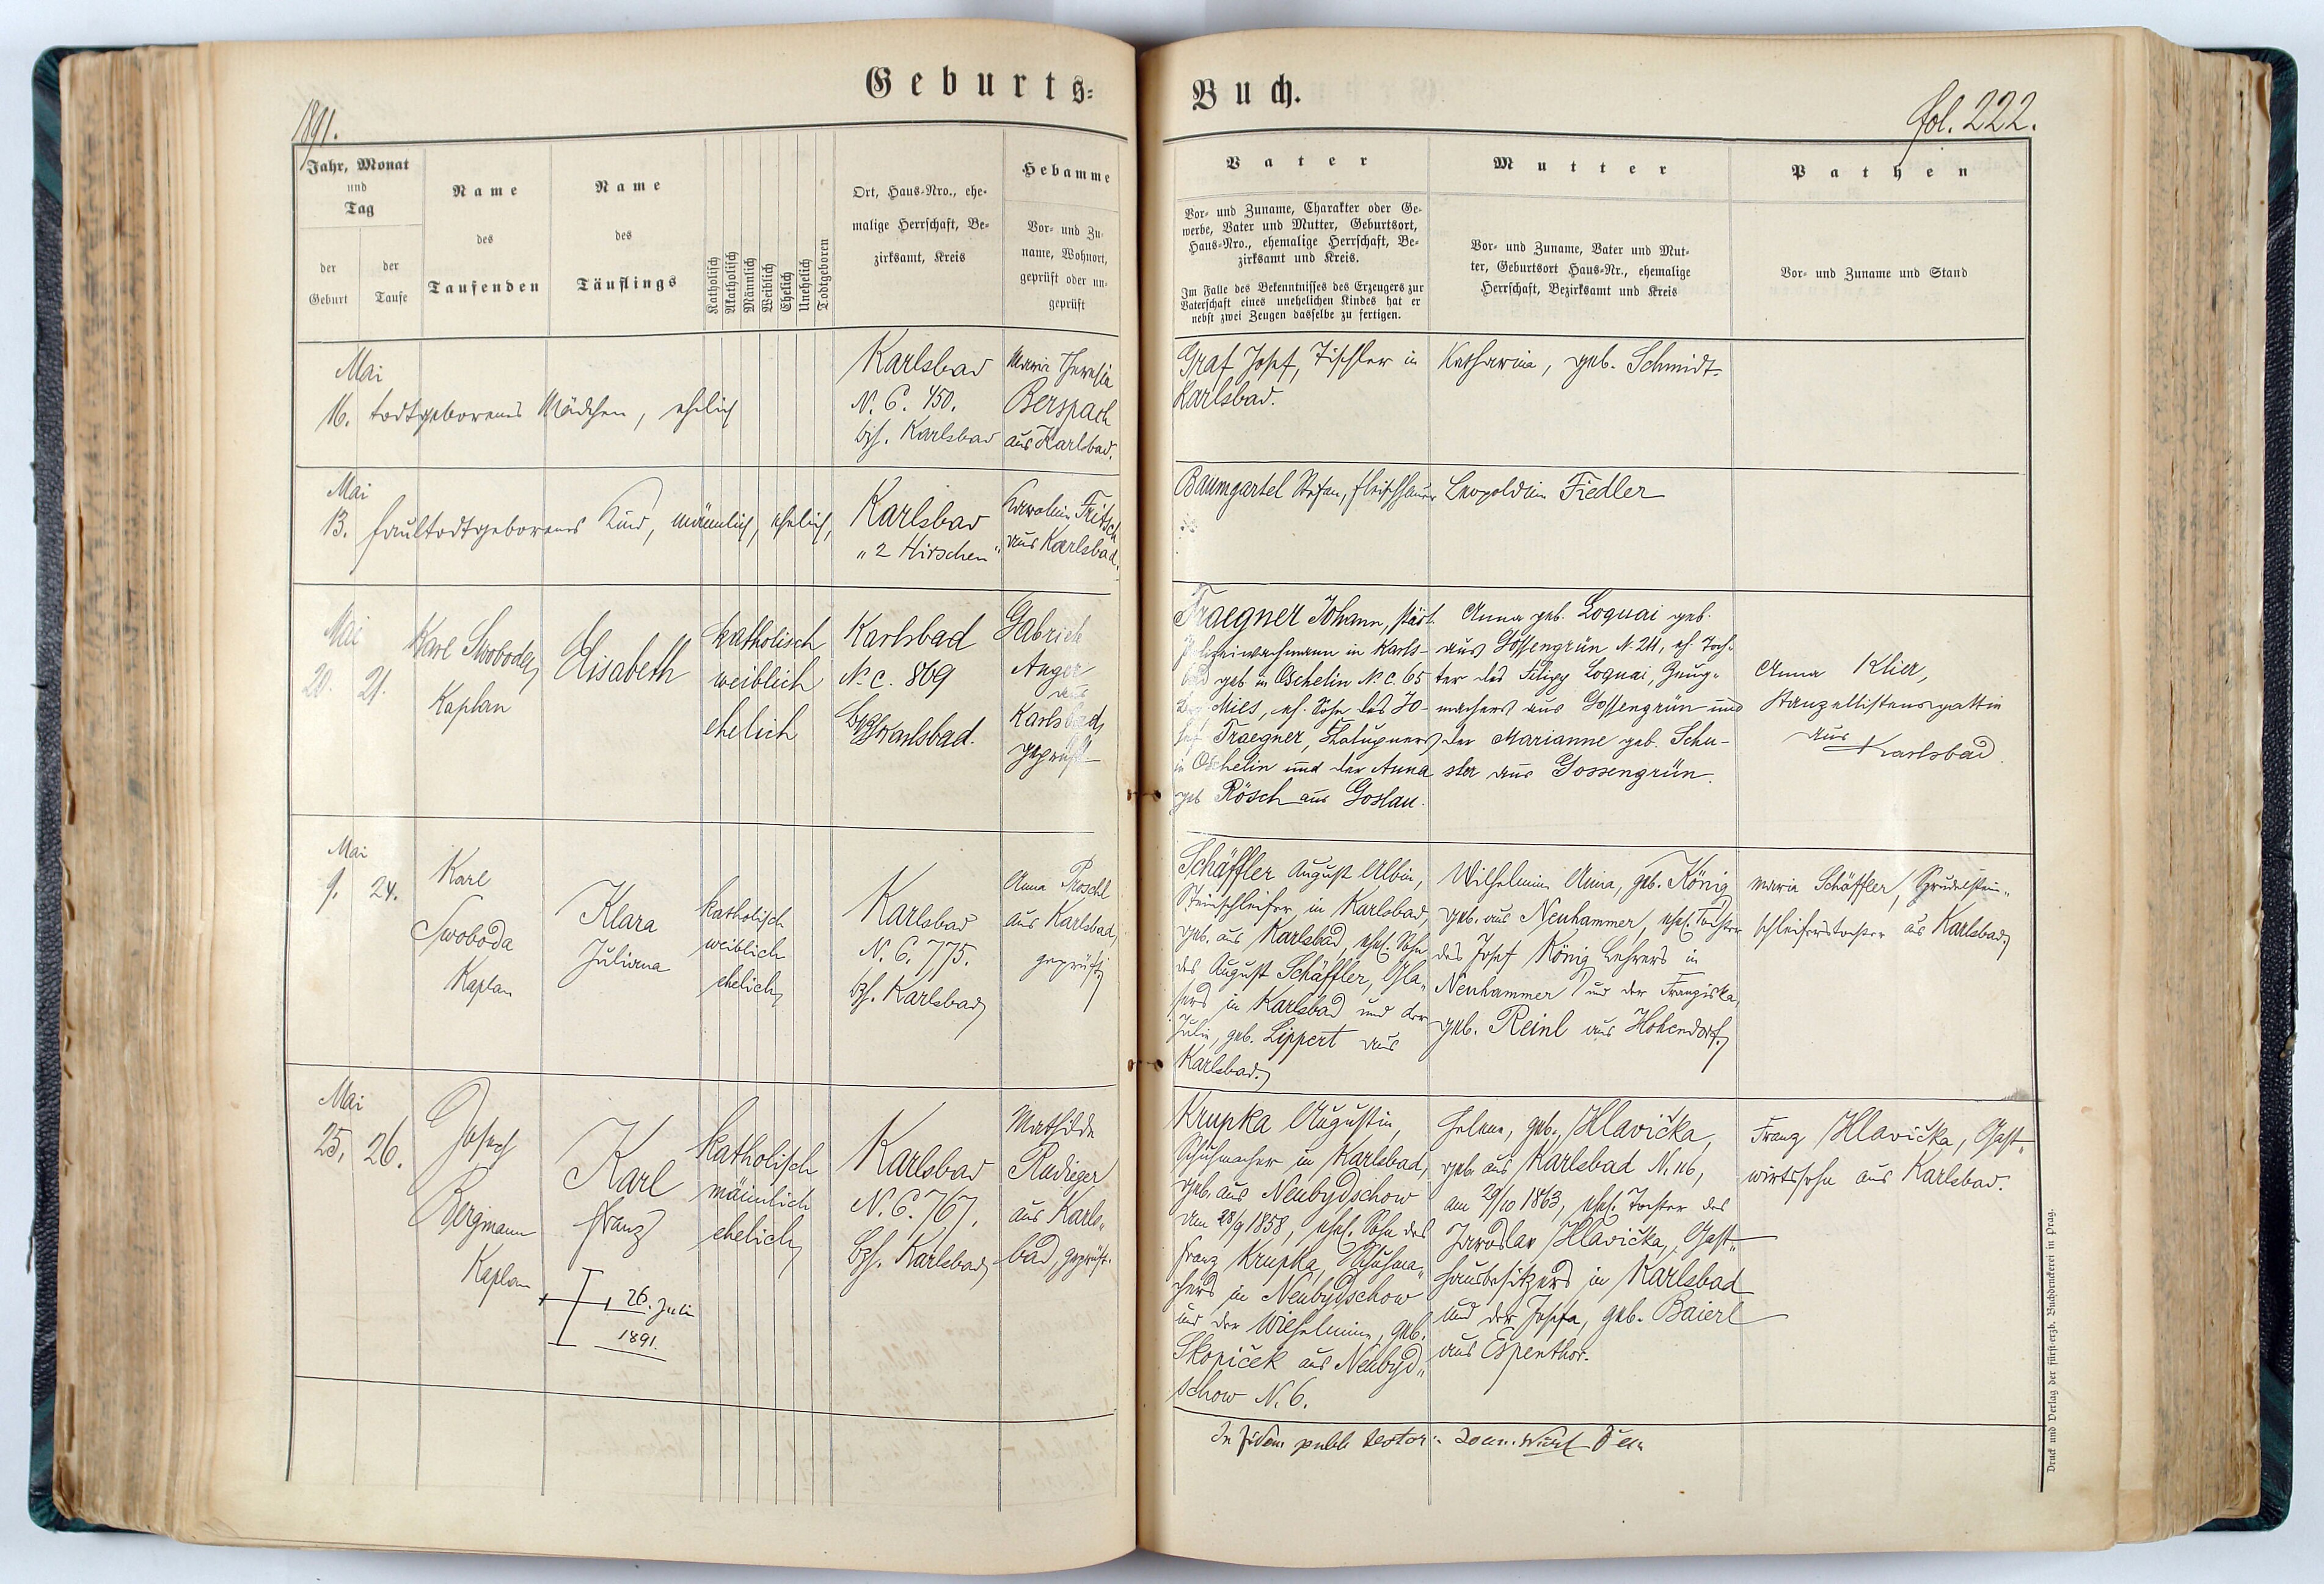 Geburts=
1891.
Jahr, Monat
und
Tag
der
Geburt
der
Taufe
Name
des
Taufenden
Name
des
Täuflings
Katholisch
Akatholisch
Männlich
Weiblich
Ehelich
Unehelich
Todtgeboren
Ort, Haus-Nro., ehe-
malige Herrschaft, Be-
zirksamt, Kreis
Hebamme
Vor- und Zu-
name, Wohnort,
geprüft oder un-
geprüft
Mai
16. todtgeborenes Mädchen, ehelich
Karlsbad
N. C. 450.
bzh. Karlsbad
Maria Theresia
Berspach
aus Karlsbad.
Mai
13. faultodtgeborenes Kind, männlich, ehelich,
Karlsbad
"2 Hirschen"
Karolin Fritsch
aus Karlsbad.
Mai
20. 21.
Karl Swoboda
Kaplan
Elisabeth
katholisch
weiblich
ehelich
Karlsbad
N. C. 869
Karlsbad.
Gabriele
Anger
aus
Karlsbad
geprüft
Mai
9. 24.
Karl
Swoboda
Kaplan
Klara
Juliana
katholisch
weiblich
ehelich
Karlsbad
N. C. 775.
bzh. Karlsbad
Anna Proschl
aus Karlsbad,
geprüft
Mai
25. 26.
Josef
Bergmann
Kaplan
Karl
Franz
26. Juli
1891.
katholisch
männlich
ehelich
Karlsbad
N. C. 767.
bzh. Karlsbad
Mathilde
Rudiger
aus Karls-
bad, geprüft.
Buch.
fol. 222.
Vater
Vor- und Zuname, Charakter oder Ge-
werbe, Vater und Mutter, Geburtsort,
Haus-Nro., ehemalige Herrschaft, Be-
zirksamt und Kreis.
Im Falle des Bekenntnisses des Erzeugers zur
Vaterschaft eines unehelichen Kindes hat er
nebst zwei Zeugen dasselbe zu fertigen.
Mutter
Vor- und Zuname, Vater und Mut-
ter, Geburtsort Haus-Nr., ehemalige
Herrschaft, Bezirksamt und Kreis
Pathen
Vor- und Zuname und Stand
Graf Josef, Tischler in
Karlsbad.
Katharina, geb. Schmidt.
Baumgartel Stefan, Fleischhauer
Leopoldin Fiedler
Traegner Johann, städt.
Polizeiwachmann in Karls-
bad geb. in Oschelin N. C. 65
Mies, eh. Sohn des Jo-
sef Traegner, Chalupners
in Oschelin und der Anna
geb. Rösch aus Goslau.
Anna geb. Loquai geb.
aus Gossengrün N. 211, eh. Toch-
ter des Filipp Loquai, Zeug-
machers aus Gossengrün und
der Marianne geb. Schu-
ster aus Gossengrün.
Anna Klier,
Kanzellistensgattin
aus
Karlsbad
Schäffler August Albin,
Steinschleifer in Karlsbad,
geb. aus Karlsbad, ehel. Sohn
des August Schäffler, Gla-
sers in Karlsbad und der
Julie, geb. Lippert aus
Karlsbad.
Wilhelmine Anna, geb. König
geb. aus Neuhammer, ehel. Tochter
des Josef König Lehrers in
Neuhammer und der Franziska,
geb. Reinl aus Hohendorf.
Maria Schäffler, Sprudelstein-
schleiferstochter aus Karlsbad
Krupka Augustin,
Schuhmacher in Karlsbad,
geb. aus Neubydschow
am 28/9 1858, ehel. Sohn des
Franz Krupka, Schuhma-
chers in Neubydschow
und der Wilhelmine, geb.
Skopiček aus Neubyd-
schow N. 6.
Helene, geb. Hlavička,
geb. aus Karlsbad N. 116,
am 29/10 1863, ehel. Tochter des
Jaroslav Hlavička, Gast-
hausbesitzers in Karlsbad
und der Josefa, geb. Baierl
aus Espenthor.
Franz Hlavička, Gast-
wirtssohn aus Karlsbad.
In fidem publ. testor:
Druck und Verlag der fürst-erzb. Buchdruckerei in Prag.